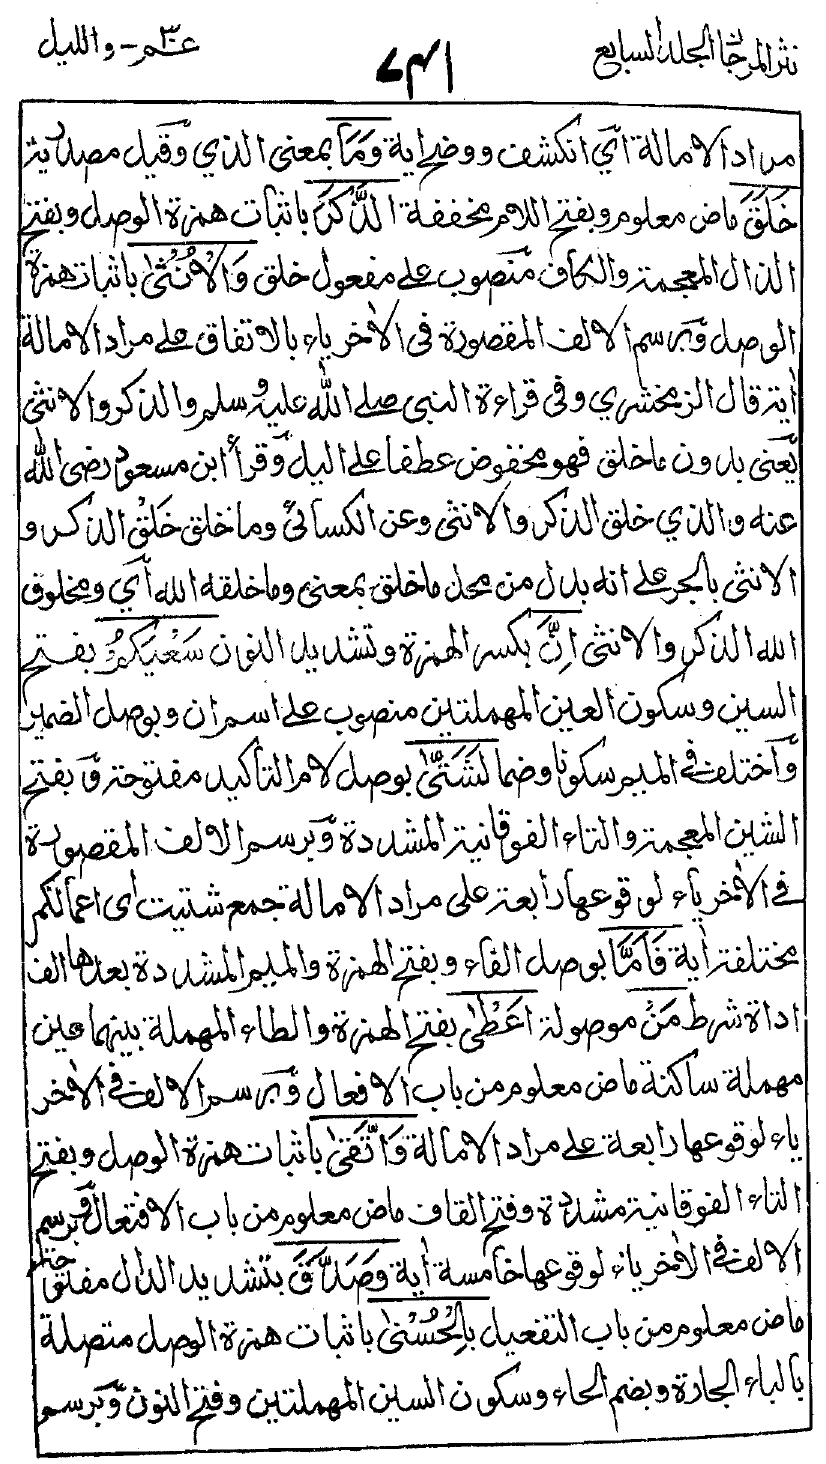 نثر المرجان الجلد السابع
٧٤١
عمّ ۳۰ - والليل
مراد الامالة اي انكشف ووضح اية وَمَا بمعنى الذي وقيل مصدرية
خَلَقَ ماض معلوم وبفتح اللام مخففة الذَّكَرَ باثبات همزة الوصل وبفتح
الذال المعجمة والكاف منصوب على مفعول خلق وَالْاُنْثٰى باثبات همزة
الوصل وبرسم الالف المقصورة في الاٰخر ياء بالاتفاق على مراد الامالة
اٰية قال الزمخشري وفي قراءة النبي صلى الله عليه وسلم والذكر والانثى
يعني بدون ما خلق فهو مخفوض عطفا على اليل وقرأ ابن مسعود رضى الله
عنه والذي خلق الذكر والانثى وعن الكسائي وما خلق خَلَقَ الذكر و
الانثى بالجر على انه بدل من محل ما خلق بمعنى وما خلقه الله اي ومخلوق
الله الذكر والانثى اِنَّ بكسر الهمزة وتشديد النون سَعْيَكُمْ بفتح
السين وسكون العين المهملتين منصوب على اسم ان وبوصل الضمير
واختلف في الميم سكونا وضما لَشَتّٰى بوصل لام التأكيد مفتوحة وبفتح
الشين المعجمة والتاء الفوقانية المشددة وبرسم الالف المقصورة
في الاٰخر ياء لوقوعها رابعة على مراد الامالة جمع شتيت اى اعمالكم
مختلفة اٰية فَاَمَّا بوصل الفاء وبفتح الهمزة والميم المشددة بعدها الف
اداة شرط مَنْ موصولة اَعْطٰى بفتح الهمزة والطاء المهملة بينهما عين
مهملة ساكنة ماض معلوم من باب الافعال وبرسم الالف في الاٰخر
ياء لوقوعها رابعة على مراد الامالة وَاتَّقٰى باثبات همزة الوصل وبفتح
التاء الفوقانية مشددة وفتح القاف ماض معلوم من باب الافتعال وبرسم
الالف في الاٰخر ياء لوقوعها خامسة اٰية وَصَدَّقَ بتشديد الدال مفتوحة
ماض معلوم من باب التفعيل بِالْحُسْنٰى باثبات همزة الوصل متصلة
بالباء الجارة وبضم الحاء وسكون السين المهملتين وفتح النون وبرسم